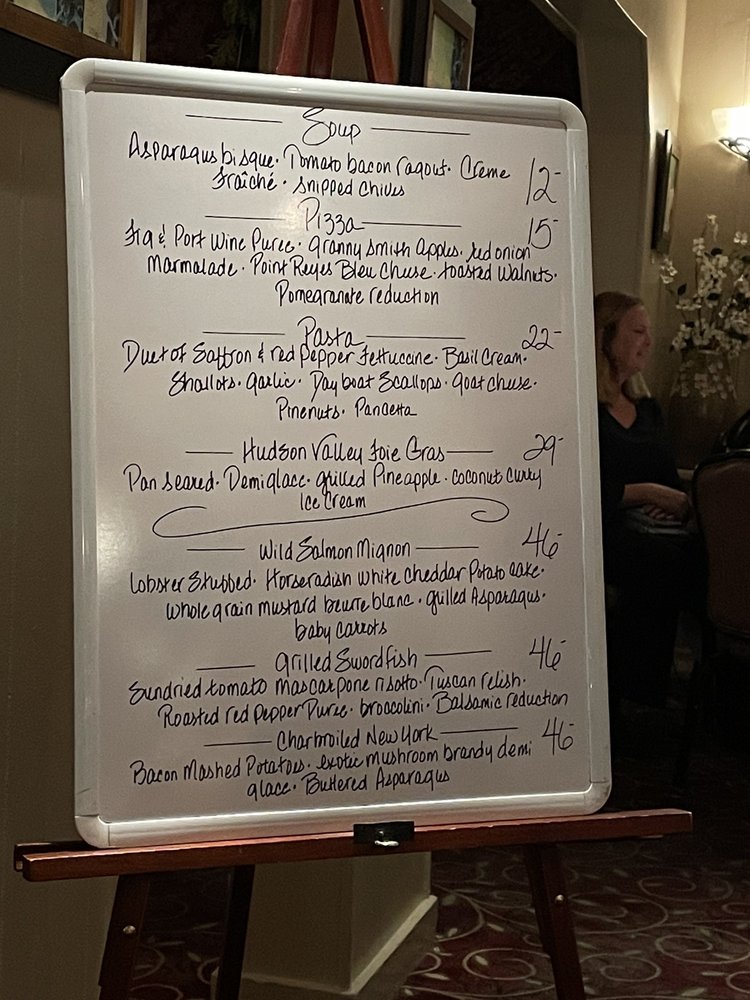 Soup
Asparagus bisque · Tomato bacon ragout · Creme 12-
fraîché · snipped chives
Pizza
Fig & Port Wine Puree · granny smith Apples · red onion 15-
Marmalade · Point Reyes Bleu Cheese · toasted Walnuts ·
Pomegranate reduction
Pasta 22-
Duet of Saffron & red pepper fettuccine · Basil Cream ·
Shallots · garlic · Day boat Scallops · goat cheese ·
Pinenuts · Pancetta
Hudson Valley Foie Gras 29-
Pan seared · Demi glace · grilled Pineapple · coconut curry
Ice Cream
Wild Salmon Mignon 46-
lobster Stuffed · Horseradish white cheddar Potato cake ·
whole grain mustard beurre blanc · grilled Asparagus ·
baby carrots
grilled Swordfish 46-
Sundried tomato mascarpone risotto · Tuscan relish ·
Roasted red pepper Puree · broccolini · Balsamic reduction
Charbroiled New York 46-
Bacon Mashed Potatoes · exotic mushroom brandy demi
glace · Buttered Asparagus